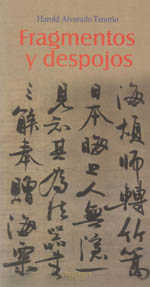 Harold Alvarado Tenorio
Fragmentos
y despojos
海煩師轉竹
日本晦上人無隱
見示其為法器
三餘奉贈海粟